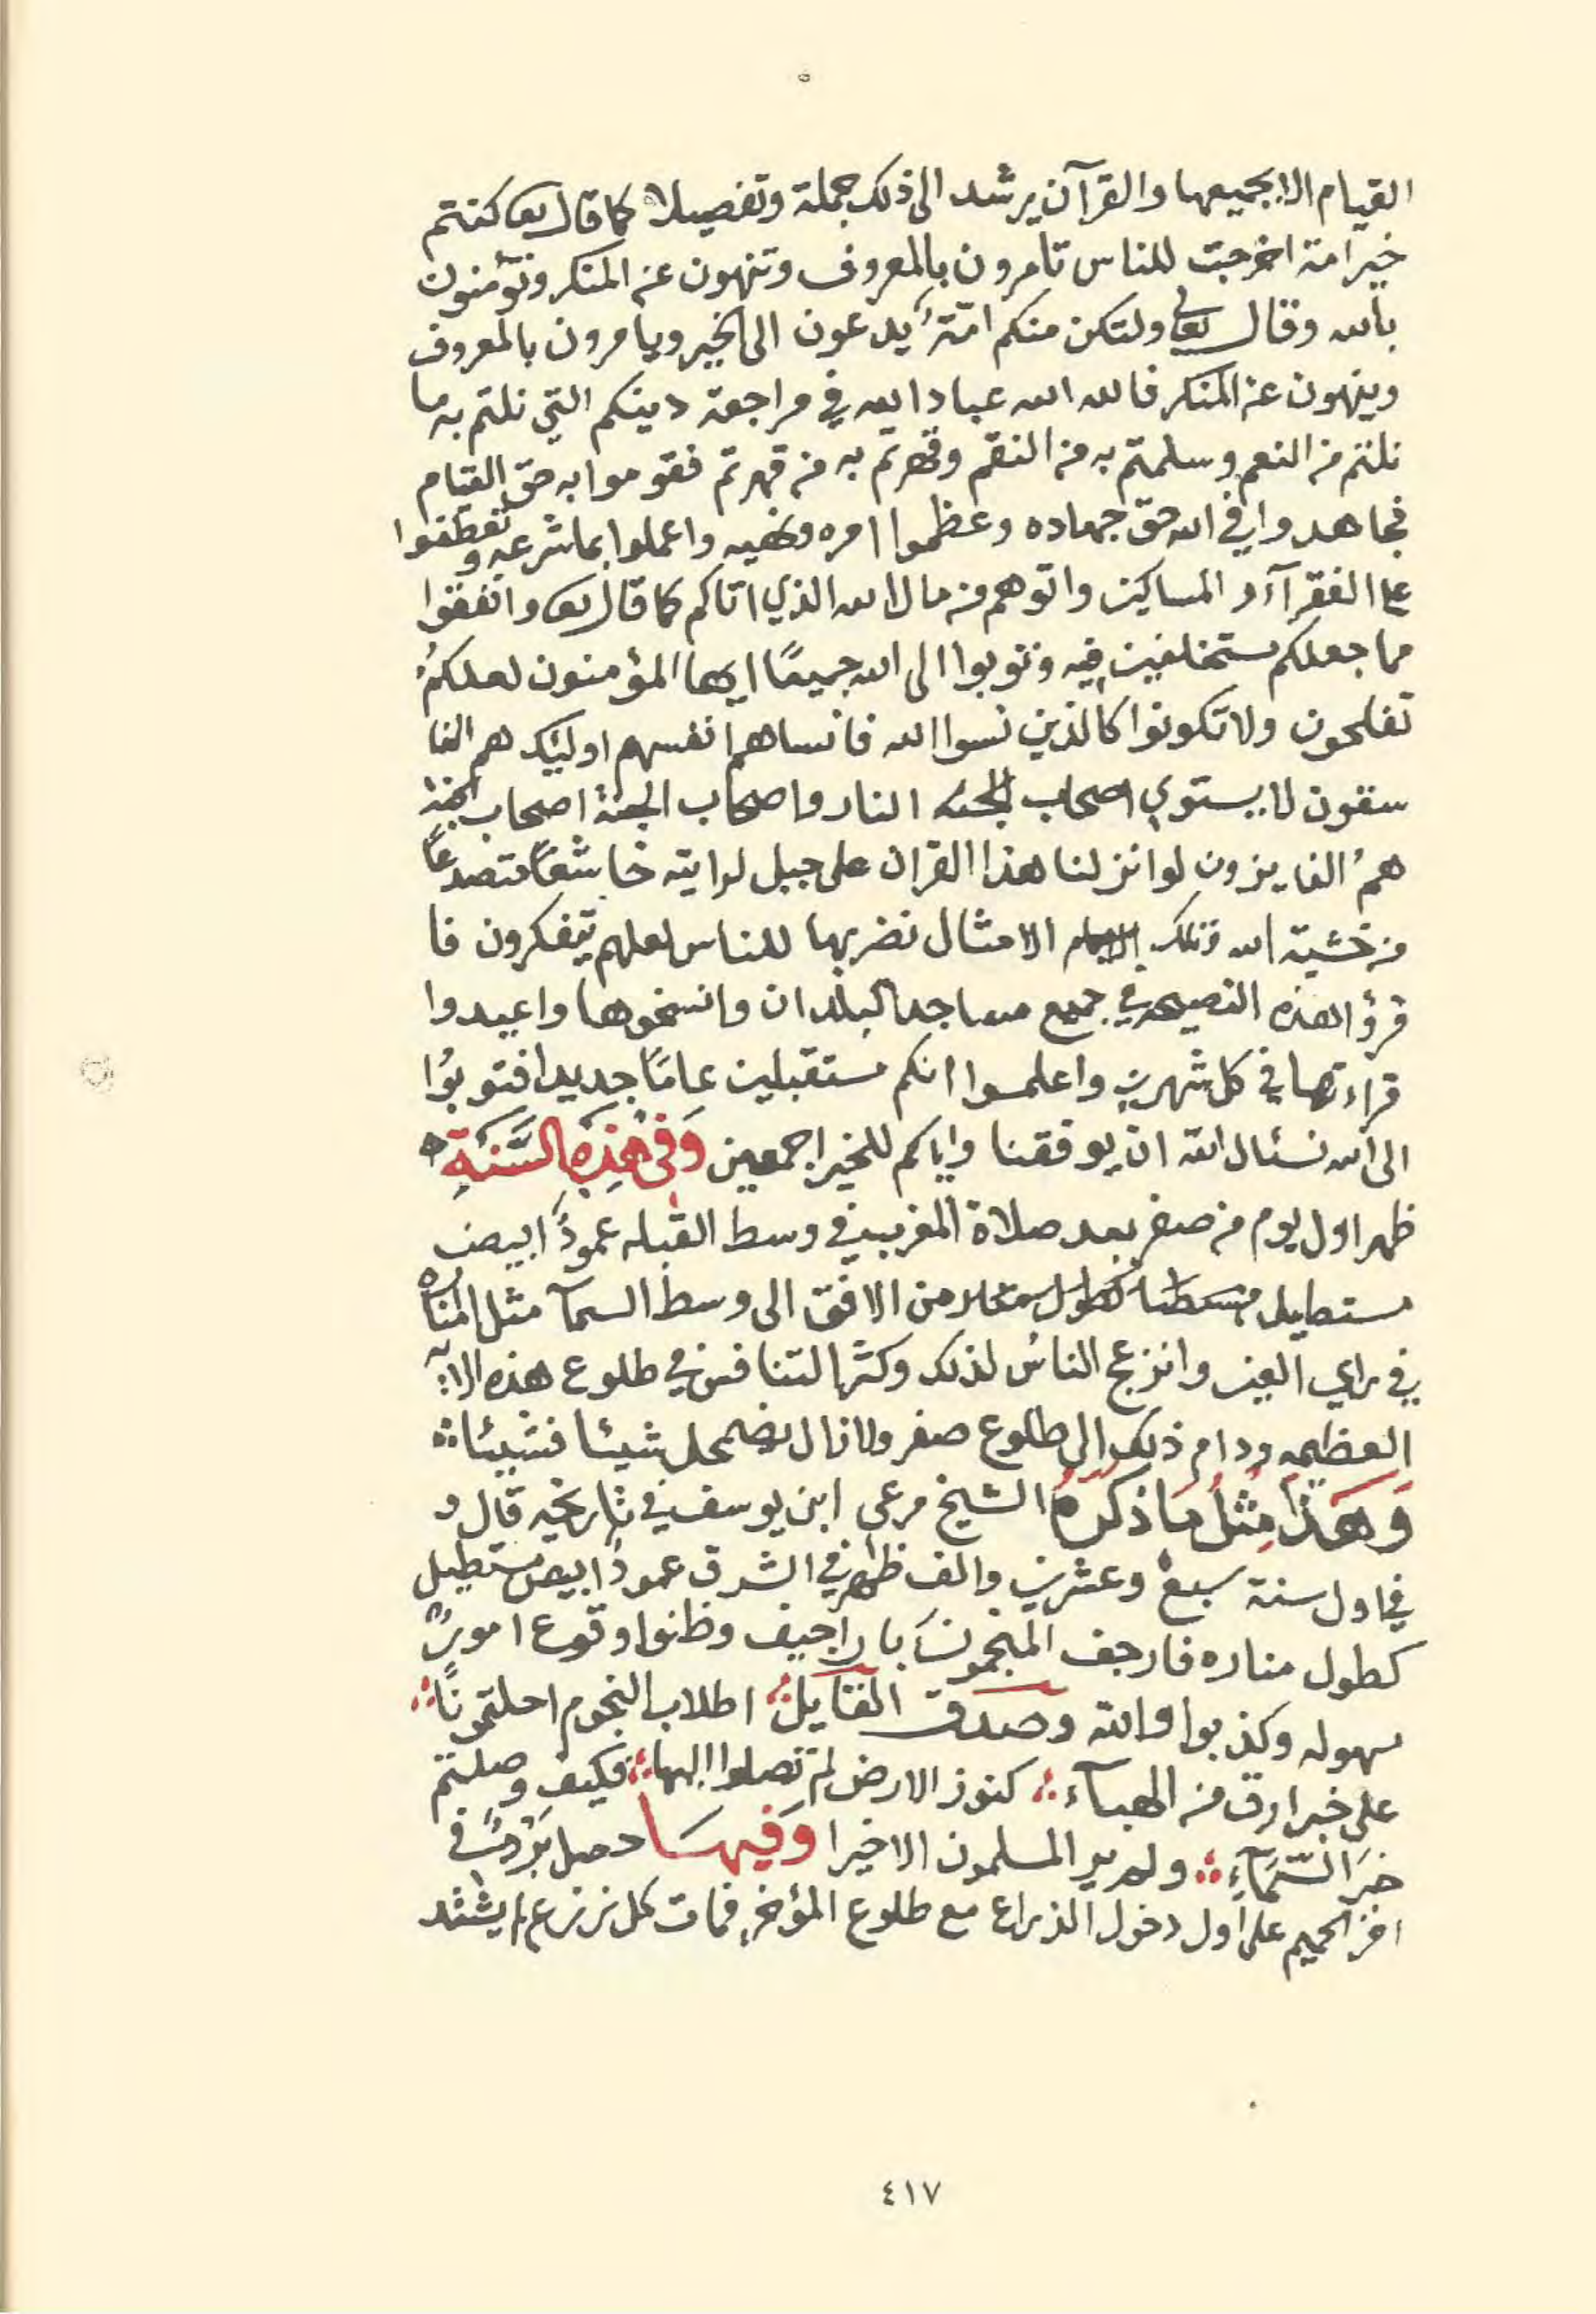 القيام الا بجميعها والقرآن يرشد الى ذلك جملة وتفصيلا كما قال تعا كنتم
خير امة اخرجت للناس تامرون بالمعروف وتنهون عن المنكر وتؤمنون
بالله وقال تعالى ولتكن منكم امّةٌ يدعون الى الخير ويامرون بالمعروف
وينهون عن المنكر فالله الله عباد الله في مراجعة دينكم التي نلتم به ما
نلتم من النعم وسلمتم به من النقم وقهرتم به من قهرتم فقوموا به حق القيام
فجاهدوا في الله حق جهاده وعظموا امره ونهيه واعملوا بما شرعه وتعطفوا
على الفقرآء والمساكين واتوهم من مال الله الذي اتاكم كما قال تعا وانفقوا
مما جعلكم مستخلفين فيه وتوبوا الى الله جميعًا ايها المؤمنون لعلكمُ
تفلحون ولا تكونوا كالذين نسوا الله فانساهم انفسهم اوليك هم الفا
سقون لا يستوي اصحاب النار واصحاب الجنة اصحاب الجنة
همُ الفايزون لو انزلنا هذا القران على جبل لرايته خاشعًا متصدعًا
من خشية الله وتلك الامثال نضربها للناس لعلهم يتفكرون فا
قرؤا هذه النصيحه في جميع مساجد البلدان وانسخوها واعيدوا
قراءتها في كل شهرين واعلموا انكم مستقبلين عامًا جديدا فتوبُوا
الى الله نسئال الله ان يوفقنا واياكم للخير اجمعين وَفي هٰذِهِ السَّنَةِ
ظهر اول يوم من صفر بعد صلاة المغرب في وسط القبله عمودًا ابيض
مستطيل من الافق الى وسط السمآ مثل المناره
في راي العين وانزعج الناسُ لذلك وكثر التنافس في طلوع هذه الايه
العظيمه ودام ذلك الى طلوع صفر ولا زال يضمحل شيئا فشيئا
وَهَذَا مِثْلُ مَا ذَكَرَهُ الشيخ مرعى ابن يوسف في تاريخه قال و
في اول سنة سبع وعشرين والف ظهر في الشرق عمودًا ابيض مستطيل
كطول مناره فارجف المنجمونَ باراجيف وظنوا وقوع امورٌ
مهوله وكذبوا والله وصدق القايل اطلاب النجوم احلتمونًا
على خبر ارق من الهبآء كنوز الارض لم تصلوا اليها فكيف وصلتم
خبرَ السّمَآءِ ولم ير المسلمون الا خيرا وَفيهَا حصل بَرْدٌ في
اخر الحميم على اول دخول الذراع مع طلوع المؤخر فمات كل زرع لم يشتد
٤١٧